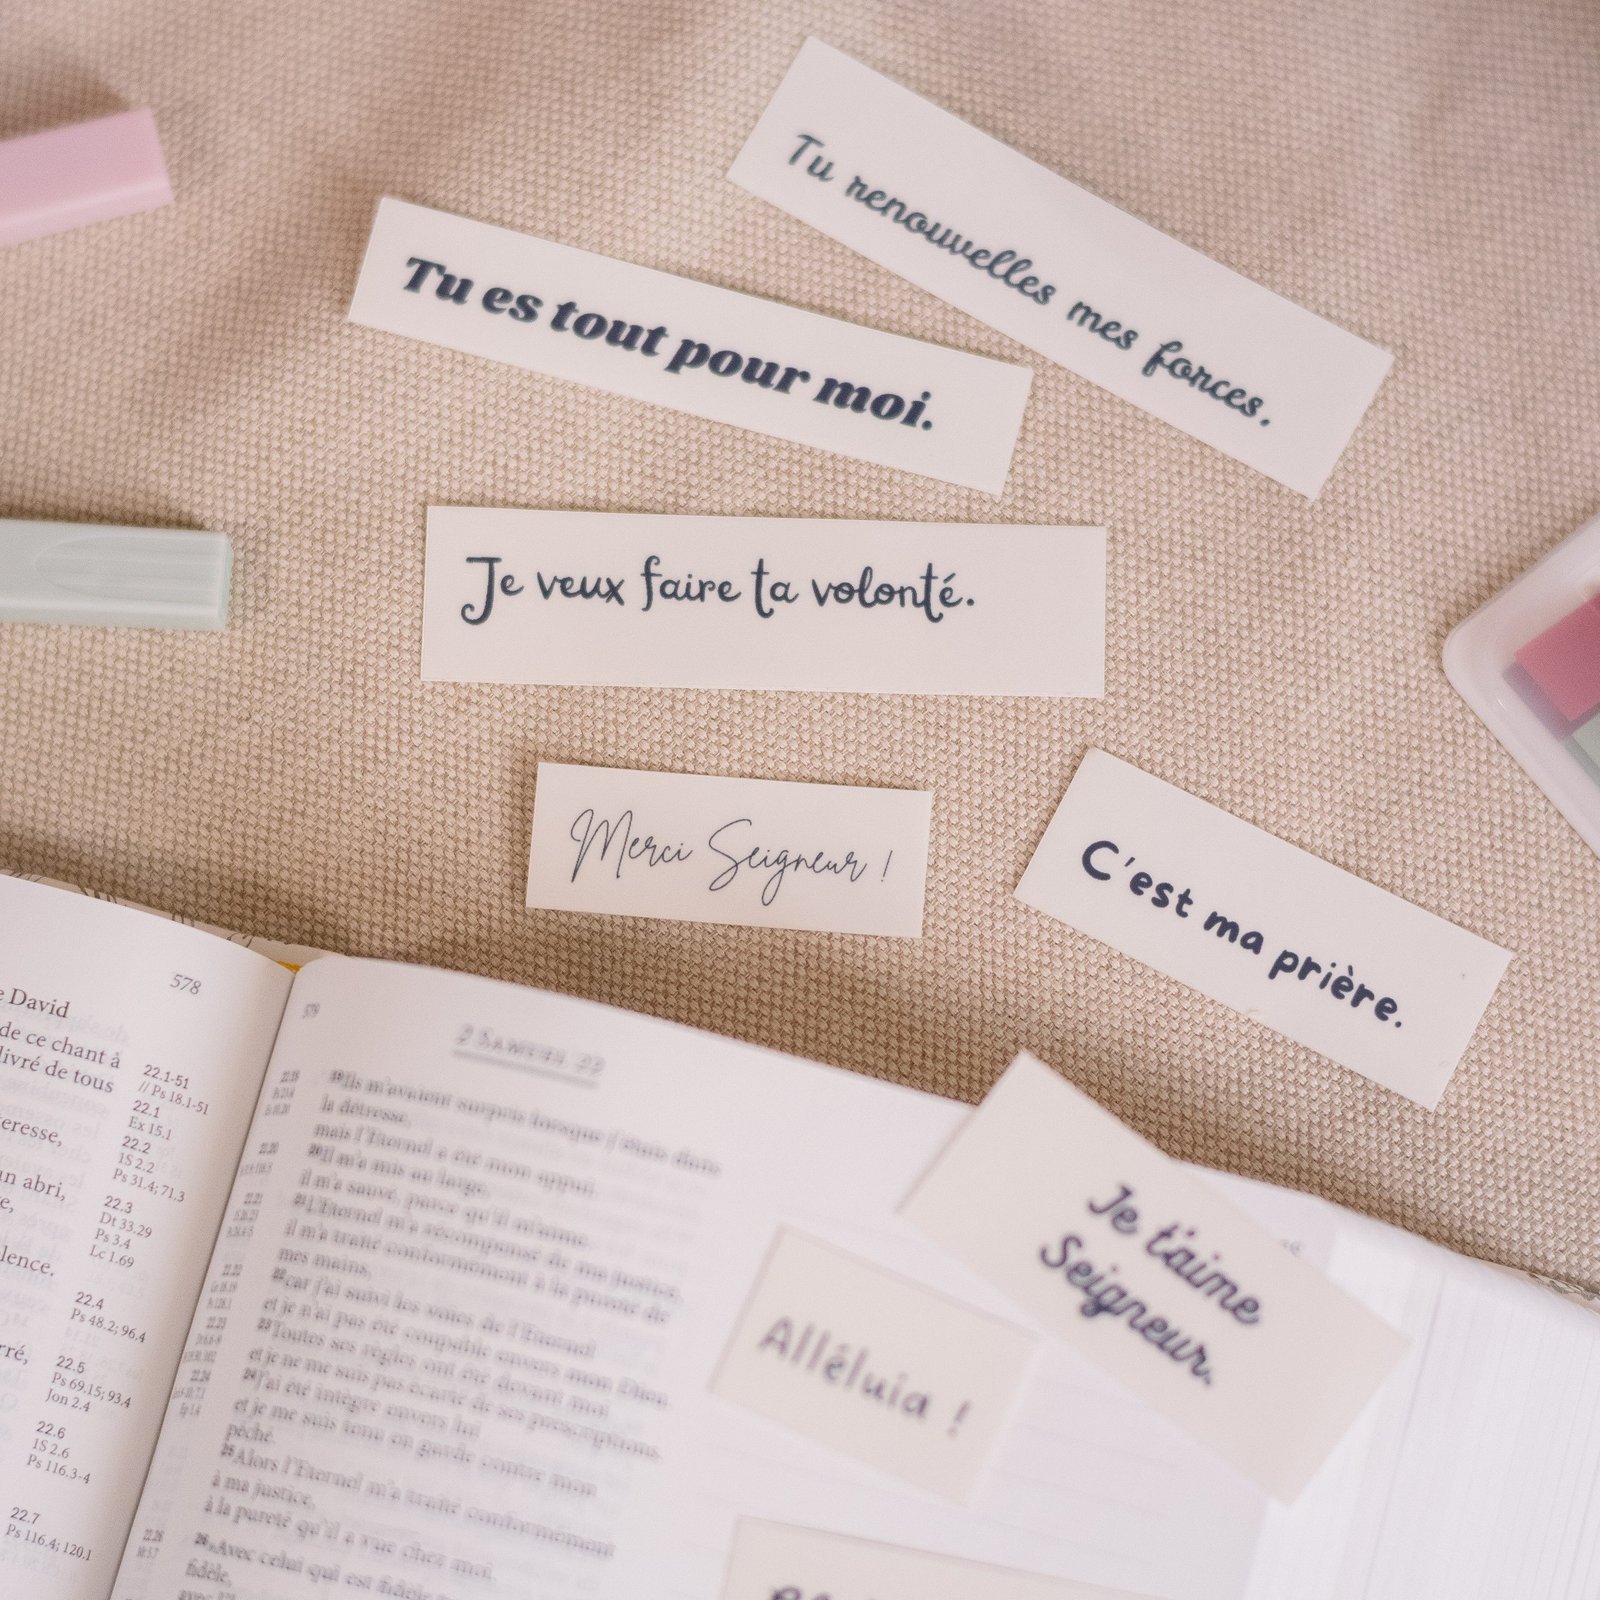 Tu renouvelles mes forces.
Tu es tout pour moi.
Je veux faire ta volonté.
Merci Seigneur !
C'est ma prière.
Je t'aime
Seigneur.
Alléluia !
578
David
de ce chant à
livré de tous
un abri,
22.1-51
// Ps 18.1-51
22.1
Ex 15.1
22.2
1S 2.2
Ps 31.4; 71.3
22.3
Dt 33.29
Ps 3.4
Lc 1.69
22.4
Ps 48.2; 96.4
22.5
Ps 69.15; 93.4
Jon 2.4
22.6
1S 2.6
Ps 116.3-4
22.7
Ps 116.4; 120.1
579
2 Samuel 22
19Ils m'avaient surpris lorsque j'étais dans
la détresse,
mais l'Eternel a été mon appui.
20Il m'a mis au large,
il m'a sauvé, parce qu'il m'aime.
21L'Eternel m'a récompensé de ma justice,
il m'a traité conformément à la pureté de
mes mains,
22car j'ai suivi les voies de l'Eternel
et je n'ai pas été coupable envers mon Dieu.
23Toutes ses règles ont été devant moi
et je ne me suis pas écarté de ses prescriptions.
24J'ai été intègre envers lui
et je me suis tenu en garde contre mon
péché.
25Alors l'Eternel m'a traité conformément
à ma justice,
à la pureté qu'il a vue chez moi.
26Avec celui qui est fidèle
fidèle,